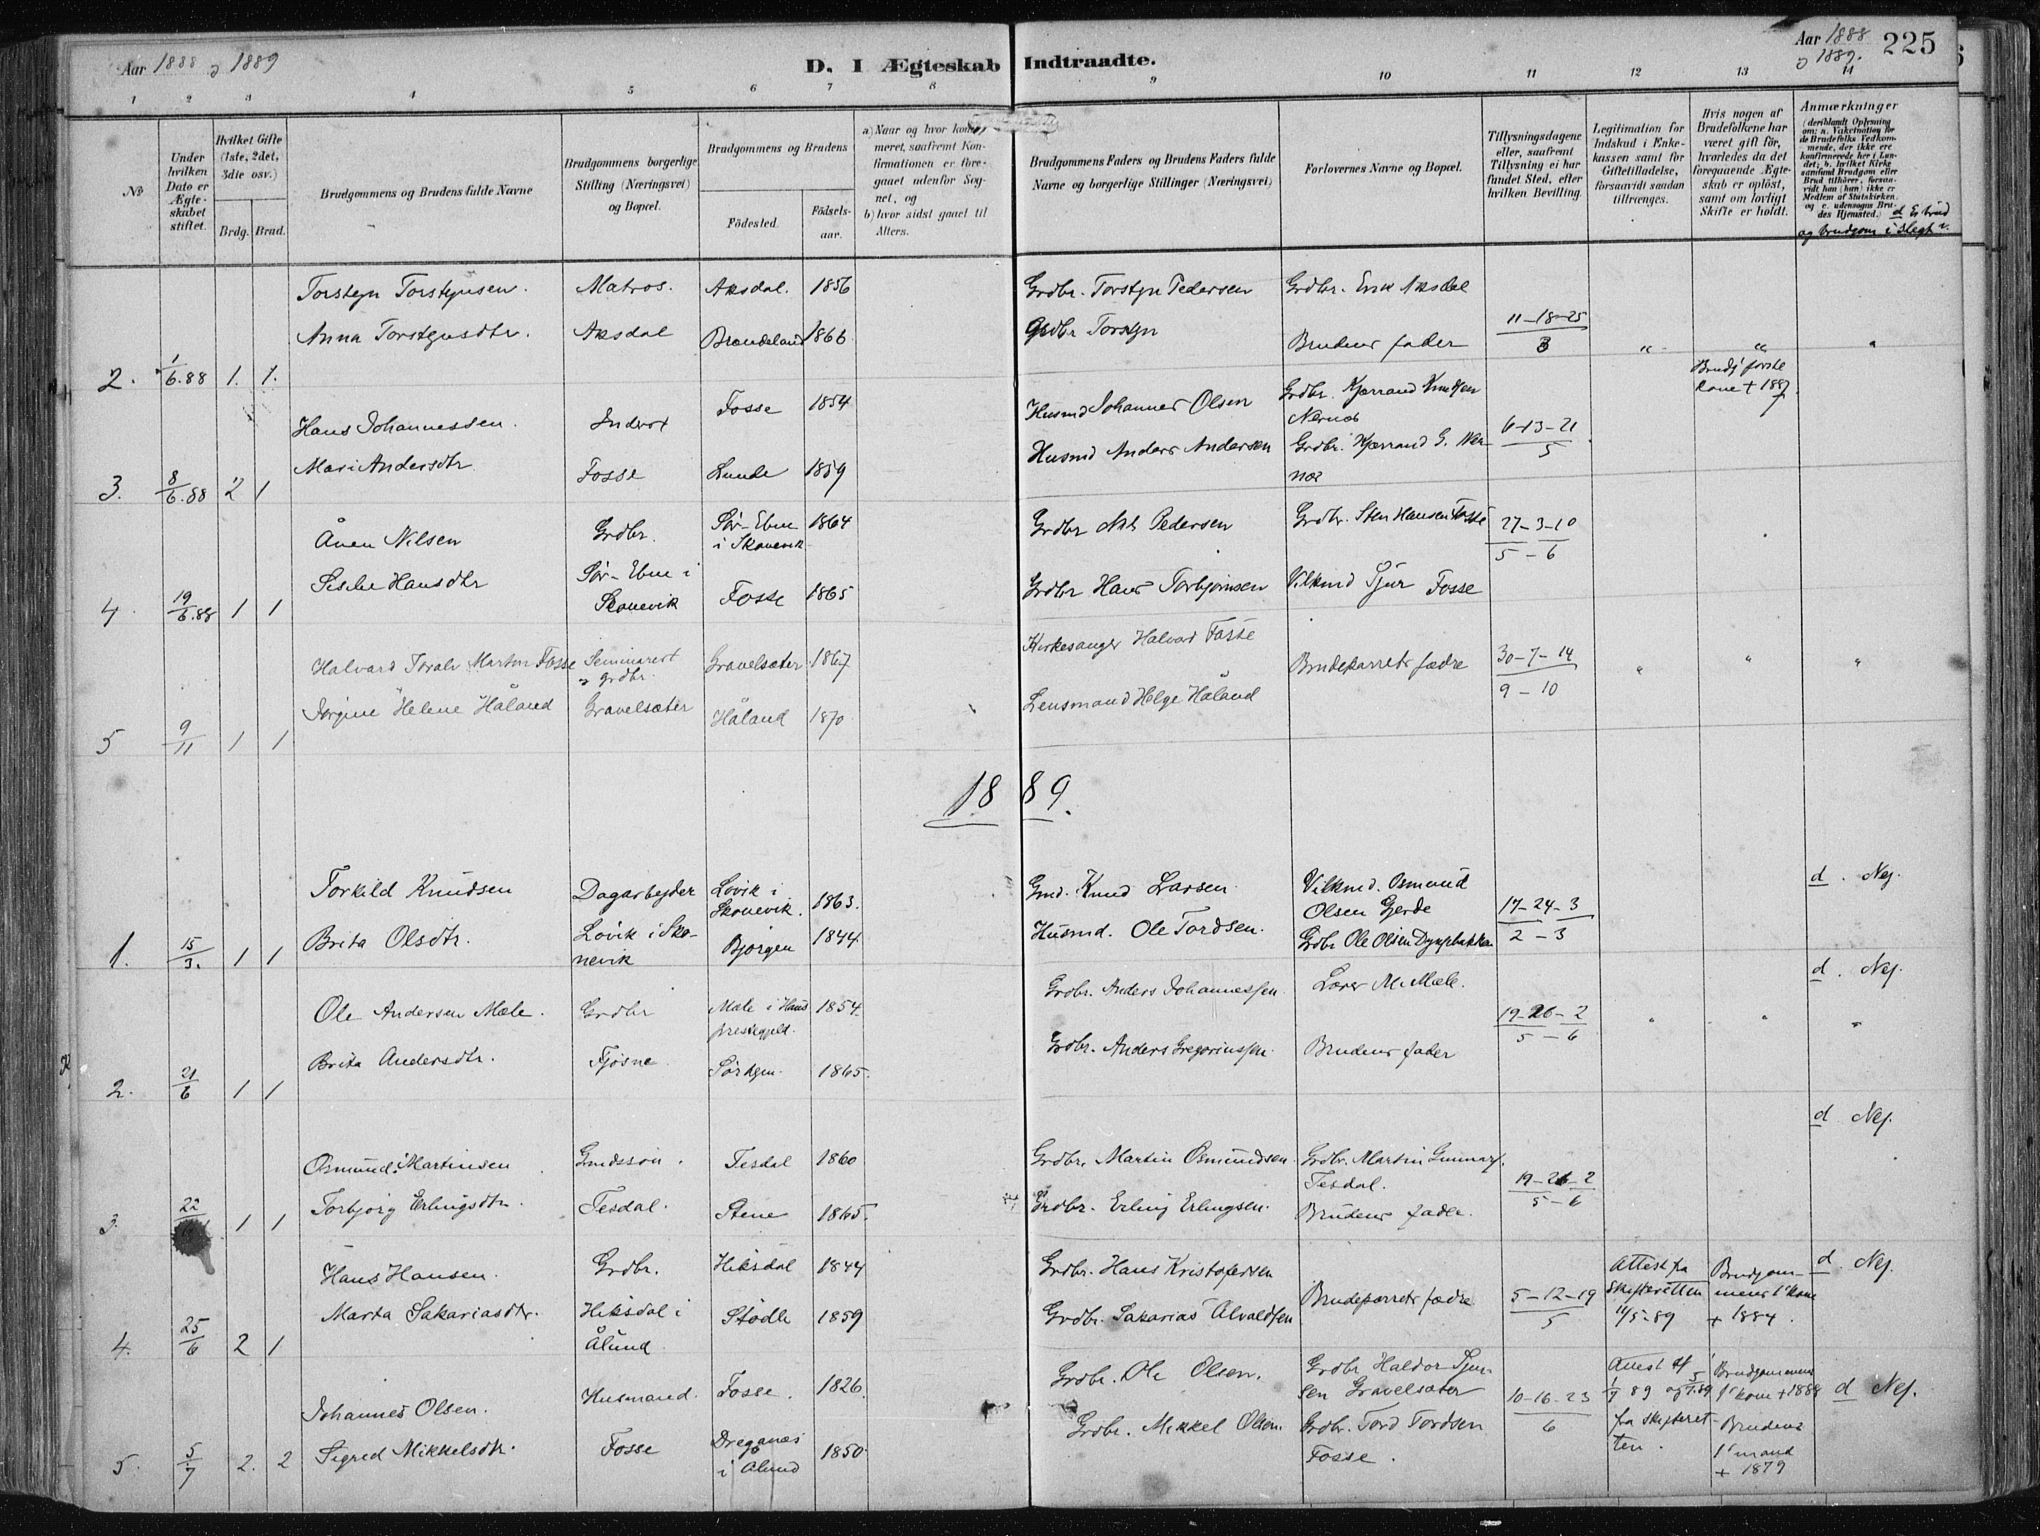 Aar 1888 og 1889
D. I Ægteskab Indtraadte.
Aar 1888 og 1889. 225
1 2 3 4 5 6 7 8 9 10 11 12 13 14
No
Under hvilken Dato er Ægteskabet stiftet.
Hvilket Gifte (1ste, 2det, 3die osv.)
Brdg. Brud.
Brudgommens og Brudens fulde Navne
Brudgommens borgerlige Stilling (Næringsvei) og Bopæl.
Brudgommens og Brudens
Födested.
Födselsaar.
a) Naar og hvor konfirmeret, saafremt Konfirmationen er foregaaet udenfor Sognet, og
b) hvor sidst gaaet til Alters.
Brudgommens Faders og Brudens Faders fulde Navne og borgerlige Stillinger (Næringsvei)
Forlovernes Navne og Bopæl.
Tillysningsdagene eller, saafremt Tillysning ei har fundet Sted, efter hvilken Bevilling.
Legitimation for Indskud i Enkekassen samt for Giftetilladelse, forsaavidt saadan tiltrænges.
Hvis nogen af Brudefolkene har været gift för, hvorledes da det foregaaende Ægteskab er oplöst, samt om lovligt Skifte er holdt.
Anmærkninger
(deriblandt Oplysning om: a. Vakcination for de Brudefolks Vedkommende, der ikke ere konfirmerede her i Landet; b. hvilket Kirkesamfund Brudgom eller Brud tilhörer, forsaavidt han (hun) ikke er Medlem af Statskirken, og c. udensogns Brudes Hjemsted.) d Er brud og brudgom i slegt?
Torsteyn Torsteynsen. Matros. Aksdal. 1856 Grdbr. Torsteyn Pedersen Grdbr. Erik Aksdal
Anna Torsteynsdtr. Aksdal Brandeland 1866 Grdbr Torsteyn Brudens fader 11-18-25
2. 1/6.88 1. 1.
3
Brudg første kone + 1887
Hans Johannessen. Inderst Fosse 1854 Husmd Johannes Olsen Grdbr. Kjerrand Knutsen Nernes
Mari Andersdtr Fosse Lunde 1859 Husmd Anders Andersen Grdbr. Kjerrand G. Nernes 6-13-21
5
3. 8/6.88 2 1
Ånen Nilsen Grdbr. Sør-Ebne i Skonevik 1864 Grdbr Nils Pedersen Grdbr. Sten Hansen Fosse 27-3-10
5-6
Hansdtr Sør-Ebne i Skonevik Fosse 1865 Grdbr Hans Torbjørnsen Vilkmd Sjur Fosse
4. 19/6.88 1 1
Halvard Toralv Martin Fosse Seminarist og grdbr. Gravelsæter 1867 Kirkesanger Halvar Fosse Brudeparrets fædre 30-7-14
9-10
Jørgine Helene Håland Gravelsæter Håland 1870 Lensmand Helge Håland
5 9/11 1 1
1889.
Torkild Knudsen Dagarbejder Løvik i Skonevik. 1863. Gmd. Knud Larsen. Vilkmd. Osmund Olsen Gjerde 17-24-3
2-3
d. Nej.
Brita Olsdtr. Løvik i Skonevik Bjørgen 1844 Husmd. Ole Tordsen. Grdbr Ole Olsen
1. 15/3. 1 1
Ole Andersen Mæle. Grdbr Mæle i Haus prestegjeld. 1854. Grdbr. Anders Johannessen Lærer M. Mæle. 19-26-2
5-6
d. Nej.
Brita Andersdtr. Fjøsne 1865. Grdbr. Anders Gregoriussen. Brudens fader
2. 21/6 1 1
d Nej.
Osmund Martinsen Gmdssøn. Tesdal 1860 Grdbr. Martin Osmundsen. Grdbr. Martin Gunnars. Tesdal. 19-26-2
5-6
Torbjørg Erlingsdtr. Tesdal. Stene 1865. Grdbr. Erling Erlingsen. Brudens fader.
3. 22 1 1
Hans Hansen. Grdbr. Hiksdal 1844 Grdbr. Hans Kristofersen Brudeparrets fædre 5-12-19
5
Attest fra Skifteretten 11/5-89
Brudgommens 1' kone + 1884.
d. Nej.
Marta Sakariasdtr. Hiksdal i Ålund. Stødle 1859 Grdbr. Sakarias Alvaldsen
4. 25/6 2 1
Johannes Olsen. Husmand. Fosse. 1826. Grdbr. Ole Olsen. Grdbr Haldor Sjursen Gravelsæter 10-16-23
6
Attest fra skifteretten.
Brudgommens 1' kone + 1888
d Nej.
Sigred Mikkelsdtr. Fosse Dreganes i Ålund 1850. Grdbr. Mikkel Olsen. Grdbr. Tord Tordsen Fosse.
Brudens 1' mand + 1879
5. 5/7 2. 2